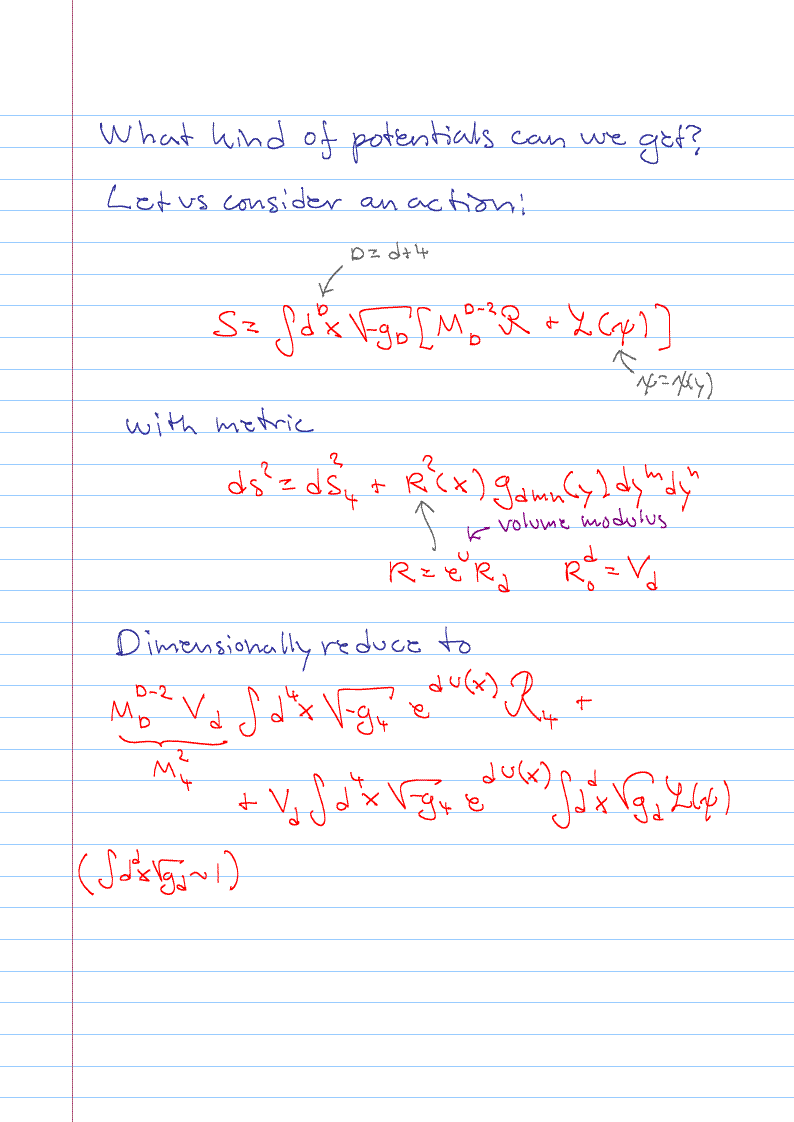 What kind of potentials can we get?
Let us consider an action:
D = d+4
S = ∫d^D x √-g_D [M_D^{D-2} R + L(ψ)]
ψ = ψ(y)
with metric
ds² = ds₄² + R²(x) g_{dmn}(y) dy^m dy^n
volume modulus
R = e^U R_d R_0^d = V_d
Dimensionally reduce to
M_D^{D-2} V_d ∫d⁴x √-g₄ e^{dU(x)} R₄ +
M₄²
+ V_d ∫d⁴x √-g₄ e^{dU(x)} ∫d^d x √g_d L(ψ)
(∫d^d x √g_d ~ 1)